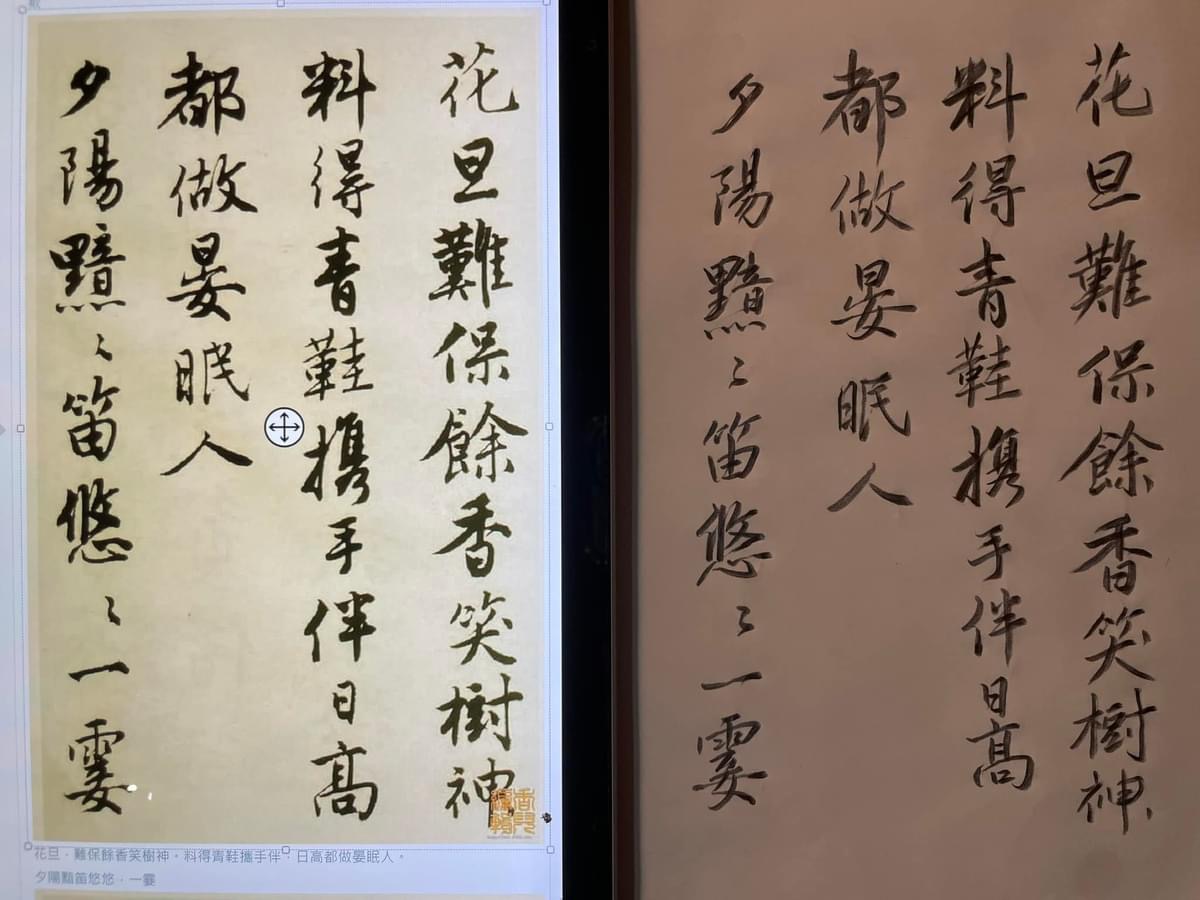 花旦難保餘香笑樹神
料得青鞋携手伴日高
都做晏眠人
夕陽黯〻笛悠〻一霎
花旦．難保餘香笑樹神。料得青鞋攜手伴．日高都做晏眠人。
夕陽黯笛悠悠．一霎
花旦難保餘香笑樹神
料得青鞋携手伴日高
都做晏眠人
夕陽黯〻笛悠〻一霎